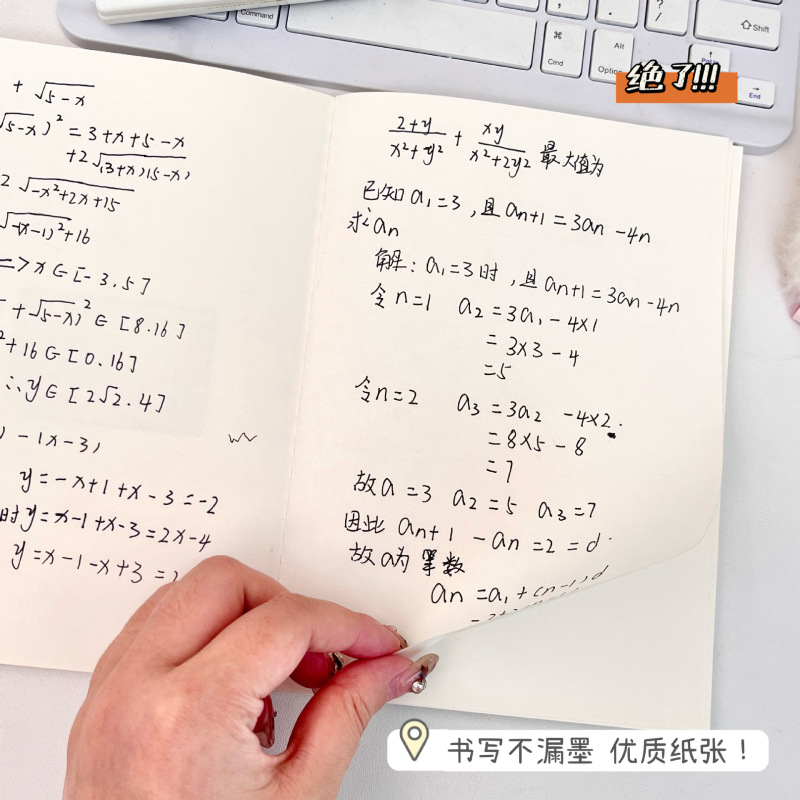 Command
⌘
Cmd
Alt
Option
?
/
⇧Shift
End
绝了!!!
+ √5-x
√5-x)² = 3+x+5-x
+2√(3+x)(5-x)
2 √-x²+2x+15
√-(x-1)²+16
=> x∈[-3,5]
+√5-x)² ∈ [8.16]
²+16∈[0.16]
∴y∈[2√2.4]
) -1x-3)
y=-x+1+x-3=-2
时y=x-1+x-3=2x-4
y=x-1-x+3=2
2+y/x²+y² + xy/x²+2y² 最大值为
已知a₁=3,且an+1=3an-4n
求an
解:a₁=3时,且an+1=3an-4n
令n=1 a2=3a₁-4×1
=3×3-4
=5
令n=2 a3=3a2 -4×2.
=8×5-8
=7
故a=3 a2=5 a3=7
因此an+1 -an=2=d.
故a为等数
an=a₁+(n-1)d
书写不漏墨 优质纸张!